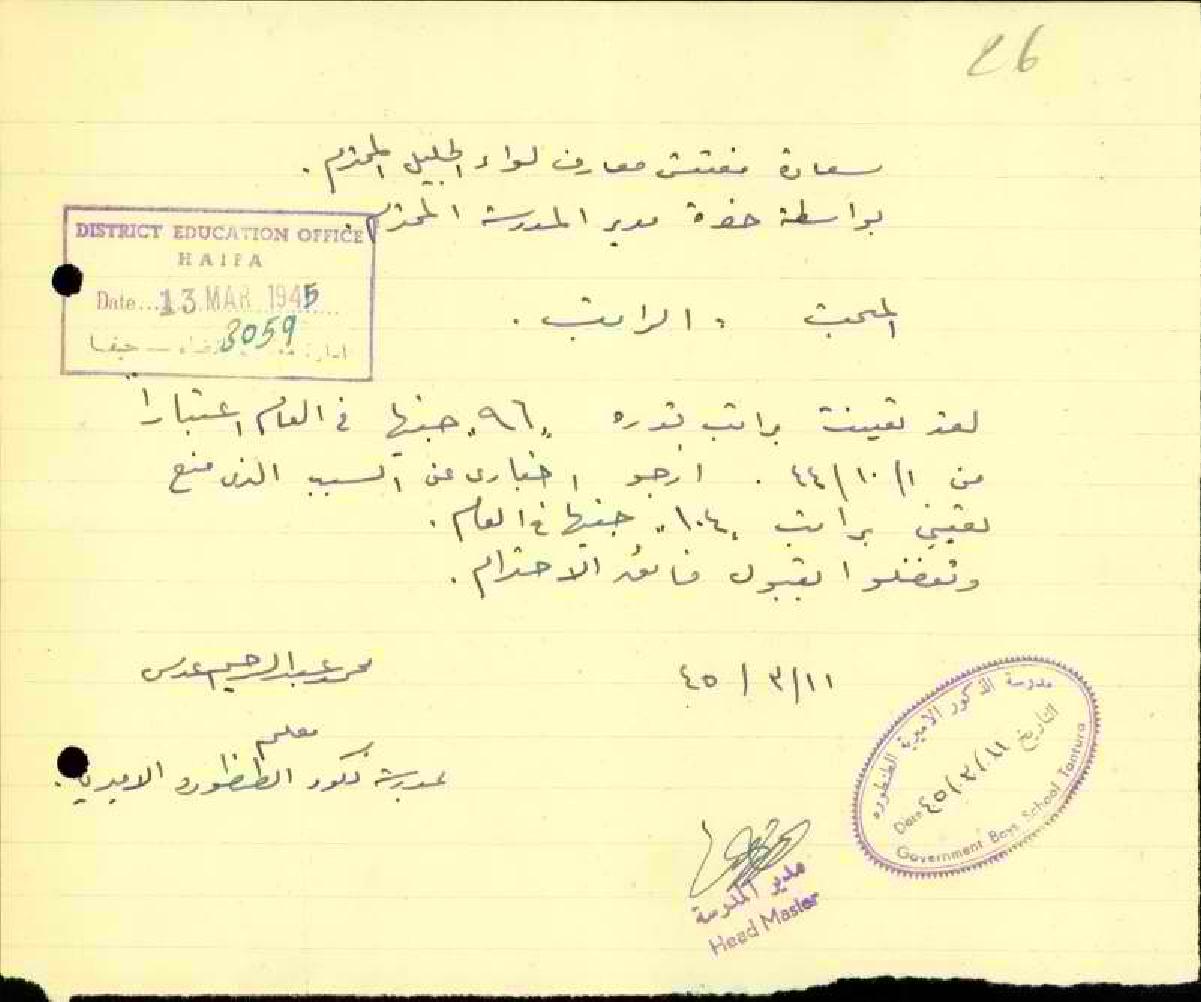 26
سعادة مفتش معارف لواء الجليل المحترم .
بواسطة حضرة مدير المدرسة المحترم .
DISTRICT EDUCATION OFFICE
HAIFA
Date... 13 MAR 1945
3059
حيفا
المبحث : الراتب .
لقد تعينت براتب قدره "٩٦" جنيها في العام اعتباراً
من ١/١٠/٤٤ . ارجو اخباري عن السبب الذي منع
تعييني براتب "١٠٤" جنيها في العام .
وتفضلوا بقبول فائق الاحترام .
١١/٣/٤٥
محمد عبد الرحيم عدس
معلم
بمدرسة ذكور الطنطورة الاميرية .
مدرسة الذكور الاميرية الطنطوره
التاريخ ١١/٣/٤٥ Date
Government Boys School Tantura
مدير المدرسة
Head Master